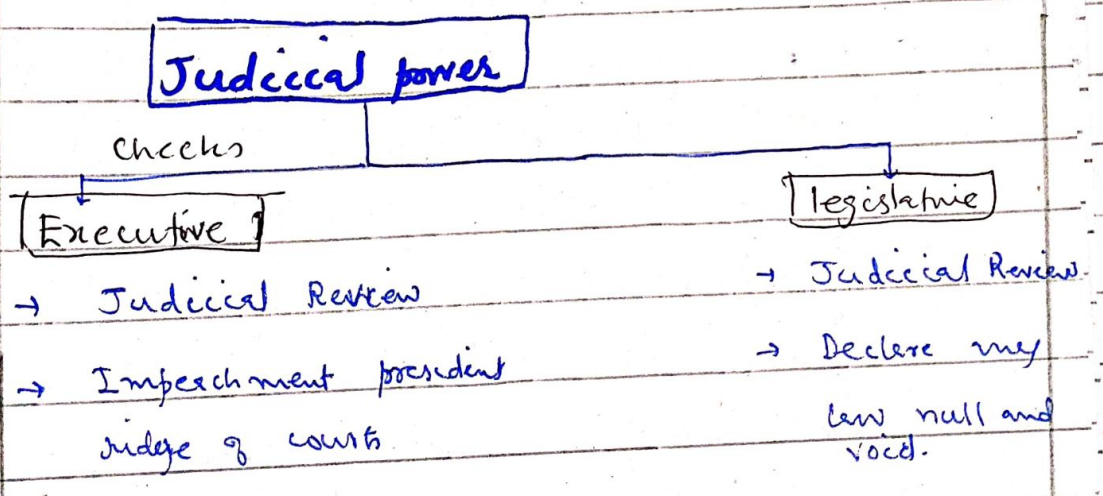 Judicial power
Checks
Executive
legislature
→ Judicial Review
→ Impeachment president
judge of courts
→ Judicial Review
→ Declare any
law null and
void.